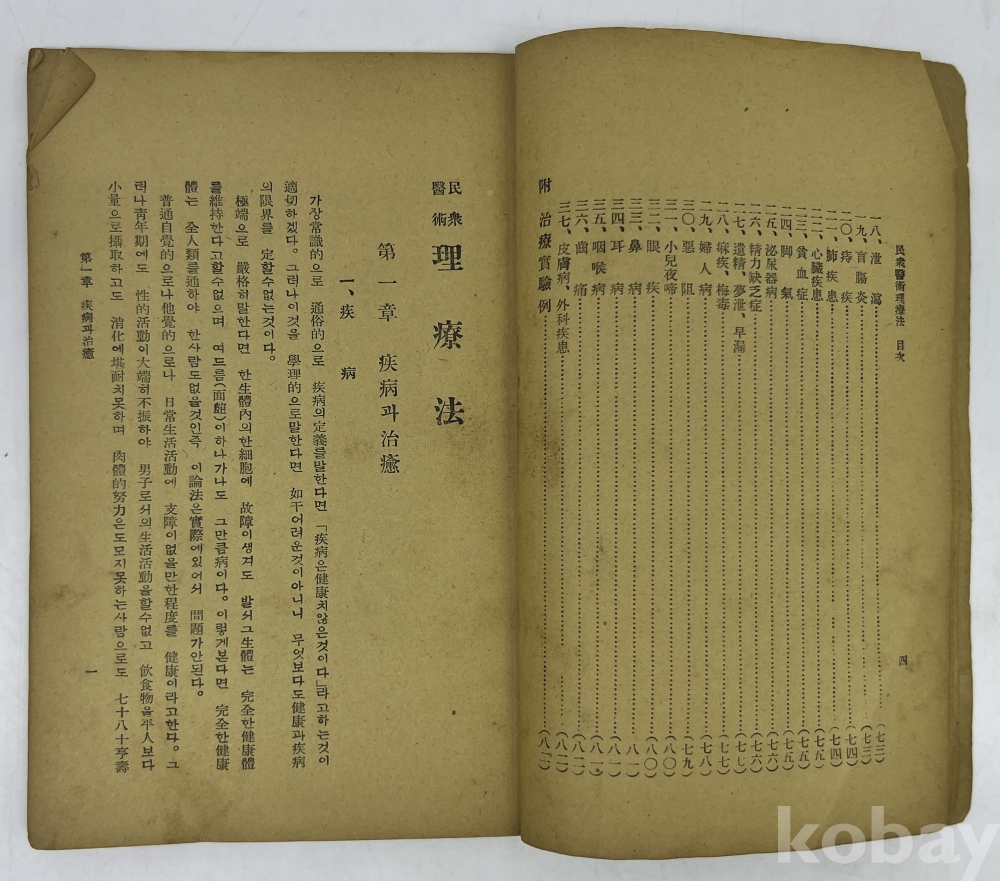 民衆醫術理療法 目次 四
一八、泄瀉……(七三)
一九、盲膓炎……(七三)
二〇、痔疾……(七四)
二一、肺疾患……(七四)
二二、心臟疾患……(七五)
二三、貧血症……(七五)
二四、脚氣……(七五)
二五、泌尿器病……(七六)
二六、精力缺乏症……(七六)
二七、遺精、夢泄、早漏……(七七)
二八、痳疾、梅毒……(七七)
二九、婦人病……(七八)
三〇、惡阻……(七九)
三一、小兒夜啼……(八〇)
三二、眼疾……(八〇)
三三、鼻病……(八一)
三四、耳病……(八一)
三五、咽喉病……(八一)
三六、齒痛……(八二)
三七、皮膚病、外科疾患……(八二)
附 治療實驗例……(八二)
民衆醫術 理療法
第一章 疾病과治癒
一、疾病
가장常識的으로 通俗的으로 疾病의定義를말한다면 「疾病은健康치않은것이다」라고하는것이
適切하겠다。그러나이것을 學理的으로말한다면 如干어려운것이아니니 무엇보다도健康과疾病
의限界를 定할수없는것이다。
極端으로 嚴格히말한다면 한生體內의한細胞에 故障이생겨도 발서그生體는 完全한健康體
를維持한다고할수없으며 여드름(面皰)이하나가나도 그만큼病이다。이렇게본다면 完全한健康
體는 全人類를通하야 한사람도없을것인즉 이論法은實際에있어서 問題가안된다。
普通自覺的으로나他覺的으로나 日常生活活動에 支障이없을만한程度를 健康이라고한다。그
러나靑年期에도 性的活動이大端히不振하야 男子로서의生活活動을할수없고 飮食物을平人보다
小量으로攝取하고도 消化에堪耐치못하며 肉體的努力은도모지못하는사람으로도 七十八十享壽
第一章 疾病과治癒 一
kobay